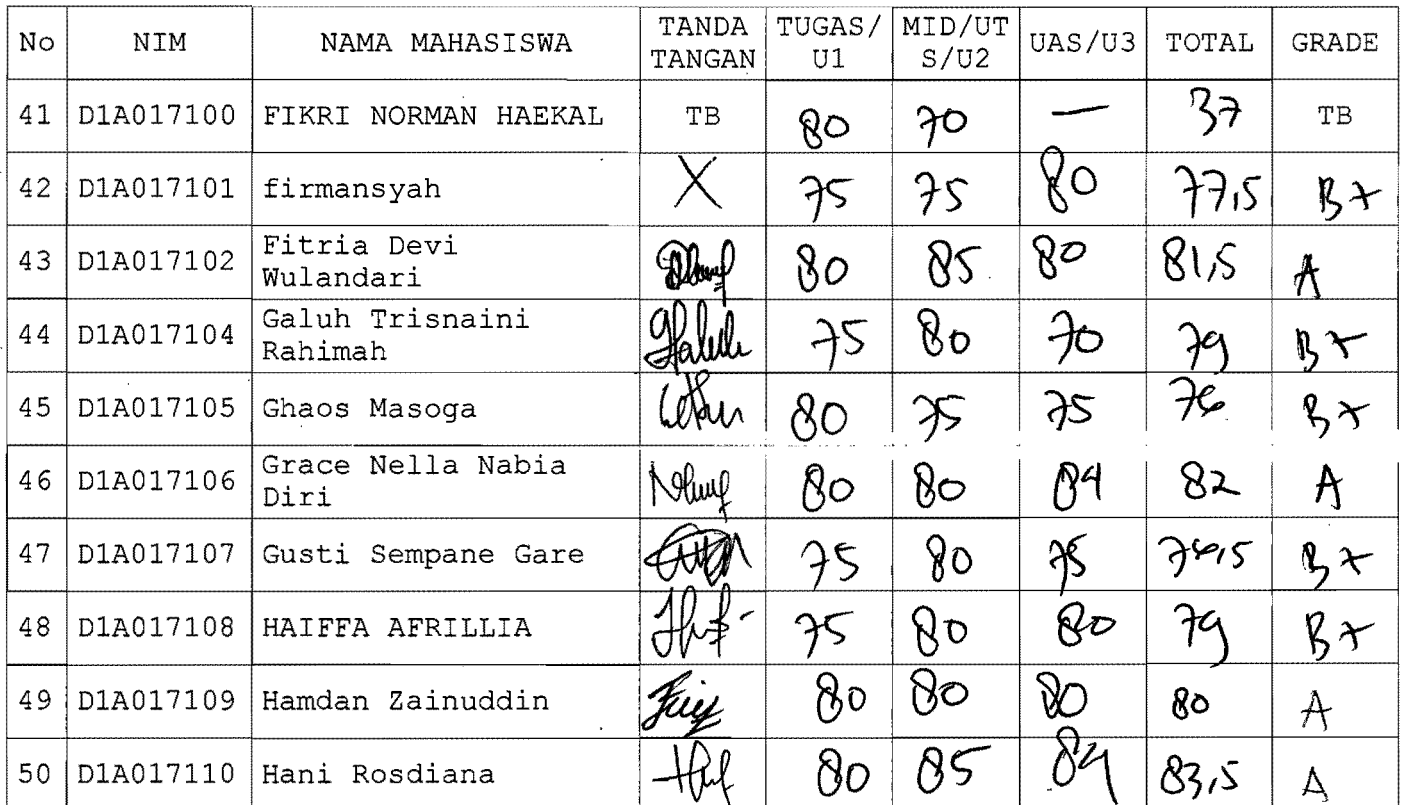 No NIM NAMA MAHASISWA TANDA TANGAN TUGAS/U1 MID/UTS/U2 UAS/U3 TOTAL GRADE
41 D1A017100 FIKRI NORMAN HAEKAL TB 80 70 — 37 TB
42 D1A017101 firmansyah X 75 75 80 77,5 B+
43 D1A017102 Fitria Devi Wulandari 80 85 80 81,5 A
44 D1A017104 Galuh Trisnaini Rahimah 75 80 70 79 B+
45 D1A017105 Ghaos Masoga 80 75 75 76 B+
46 D1A017106 Grace Nella Nabia Diri 80 80 84 82 A
47 D1A017107 Gusti Sempane Gare 75 80 75 76,5 B+
48 D1A017108 HAIFFA AFRILLIA 75 80 80 79 B+
49 D1A017109 Hamdan Zainuddin 80 80 80 80 A
50 D1A017110 Hani Rosdiana 80 85 84 83,5 A